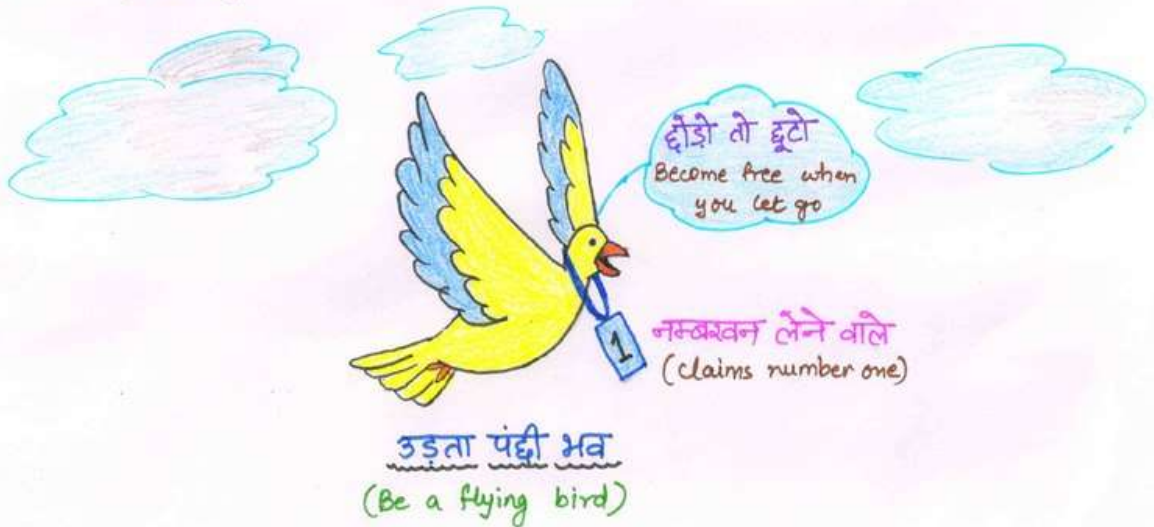 छोड़ो तो छूटो
Become free when
you let go
1
नम्बरवन लेने वाले
(claims number one)
उड़ता पंछी भव
(Be a flying bird)